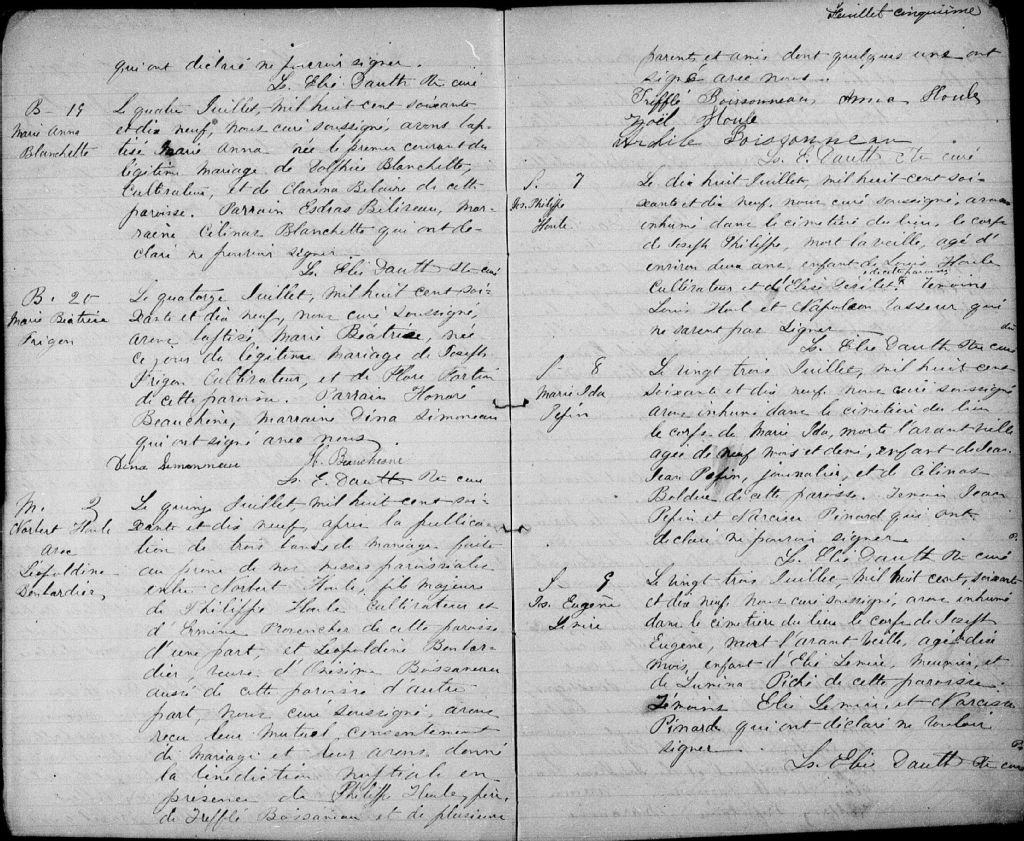 qui ont déclaré ne pouvoir signer.
Ls. Elie Dauth Ptre curé
B - 19
Marie Anna
Blanchette
Le quatre Juillet, mil huit cent soixante
et dix neuf, nous curé soussigné, avons bap-
tisé Marie Anna née le premier courant du
légitime mariage de Dolphice Blanchette,
Cultivateur, et de Clarina Belaire de cette
paroisse. Parrain Esdras Béliveau, Mar-
raine Célinas Blanchette qui ont dé-
claré ne pouvoir signer.
Ls. Elie Dauth Ptre curé
B. 20
Marie Béatrice
Frigon
Le quatorze Juillet, mil huit cent soi-
xante et dix neuf, nous curé soussigné,
avons baptisé Marie Béatrice, née
ce jour du légitime mariage de Joseph
Frigon Cultivateur, et de Flore Fortin
de cette paroisse. Parrain Honoré
Beauchène, Marraine Dina Simoneau
qui ont signé avec nous.
Dina Simonneau H. Beauchesne
Ls. E. Dauth Ptre curé
M. 2
Norbert Houle
avec
Léopoldine
Bombardier
Le quinze Juillet mil huit cent soi-
xante et dix neuf, après la publica-
tion de trois bans de mariage faite
au prône de nos messes paroissiales
entre Norbert Houle, fils majeur
de Philippe Houle cultivateur et
d'Ermine Provencher de cette paroisse
d'une part, et Léopoldine Bombar-
dier, veuve d'Onésime Boissoneau
aussi de cette paroisse d'autre
part, nous curé soussigné, avons
reçu leur mutuel consentement
de mariage et leur avons donné
la bénédiction nuptiale en
présence de Philippe Houle, père,
de Trefflé Boissoneau et de plusieurs
Feuillet cinquième
parents et amis dont quelques uns ont
signé avec nous.
Trefflé Boissonneau, Anna Houle
Noël Houle
Boissonneau
Ls. E. Dauth Ptre curé
S. 7
Jos. Philippe
Houle
Le dix huit Juillet, mil huit cent soi-
xante et dix neuf, nous curé soussigné, avons
inhumé dans le cimetière du lieu, le corps
de Joseph Philippe, mort la veille, agé d'
environ deux ans, enfant de Louis Houle
de cette paroisse
Cultivateur et d'Elise Témoins
Louis Houl et Napoléon Vasseur qui
ne savent pas signer
Ls. Elie Dauth Ptre curé
S 8
Marie Ida
Pepin
Le vingt trois Juillet, mil huit cent
soixante et dix neuf, nous curé soussigné
avons inhumé dans le cimetière du lieu
le corps de Marie Ida, morte l'avant veille
agée de neuf mois et demi, enfant de Jean
Jean Pepin, journalier, et de Célinas
Bolduc de cette paroisse. Témoin Jean
Pepin et Narcisse Pinard qui ont
déclaré ne pouvoir signer
Ls. Elie Dauth Ptre curé
S 9
Jos. Eugène
Lemire
Le vingt trois Juillet mil huit cent soixante
et dix neuf nous curé soussigné, avons inhumé
dans le cimetière du lieu le corps de Joseph
Eugène, mort l'avant veille, agé de dix
mois, enfant d'Elie Lemire, Meunier, et
de Lumina Piché de cette paroisse.
Témoins Elie Lemire et Narcisse
Pinard qui ont déclaré ne vouloir
signer
Ls. Elie Dauth Ptre curé